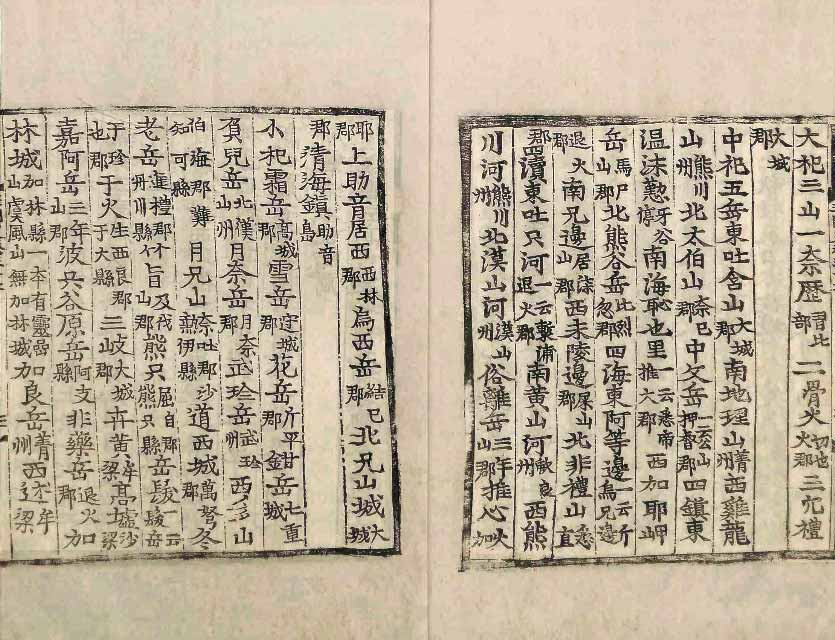 大祀三山一奈歷習比部二骨火切也火郡三穴禮
大城郡
中祀五岳東吐含山大城郡南地理山菁州西雞龍
山熊川州北太伯山奈已郡中父岳一云公山押督郡四鎭東
溫沫懃牙谷停南海恥也里一云悉帝推火郡西加耶岬
岳馬尸山郡北熊谷岳比烈忽郡四海東阿等邊一云斤烏兄邊
退火郡南兄邊居柒山郡西未陵邊屎山郡北非禮山悉直
郡四瀆東吐只河一云槧浦退火郡南黃山河歃良州西熊
川河熊川州北漢山河漢山州俗離岳三年山郡推心大加
耶郡上助音居西西林郡烏西岳結已郡北兄山城大城
郡清海鎮助音島
小祀霜岳高城郡雪岳城郡花岳斤平郡鉗岳七重城
負兒岳北漢山州月奈岳月奈郡武珍岳武珍州西多山
伯海郡難知可縣月兄山奈吐郡沙熱伊縣道西城萬弩郡冬
老岳進禮郡丹川縣竹旨及伐山郡熊只屈自郡熊只縣岳髮一云髮岳
于珍也郡于火生西良郡于火縣三岐大城郡卉黃牟梁高墟沙梁
嘉阿岳三年山郡波只谷原岳阿支縣非藥岳退火郡加
林城加林縣一本有靈嵒山虞風山無加林城加良岳菁州西述牟梁